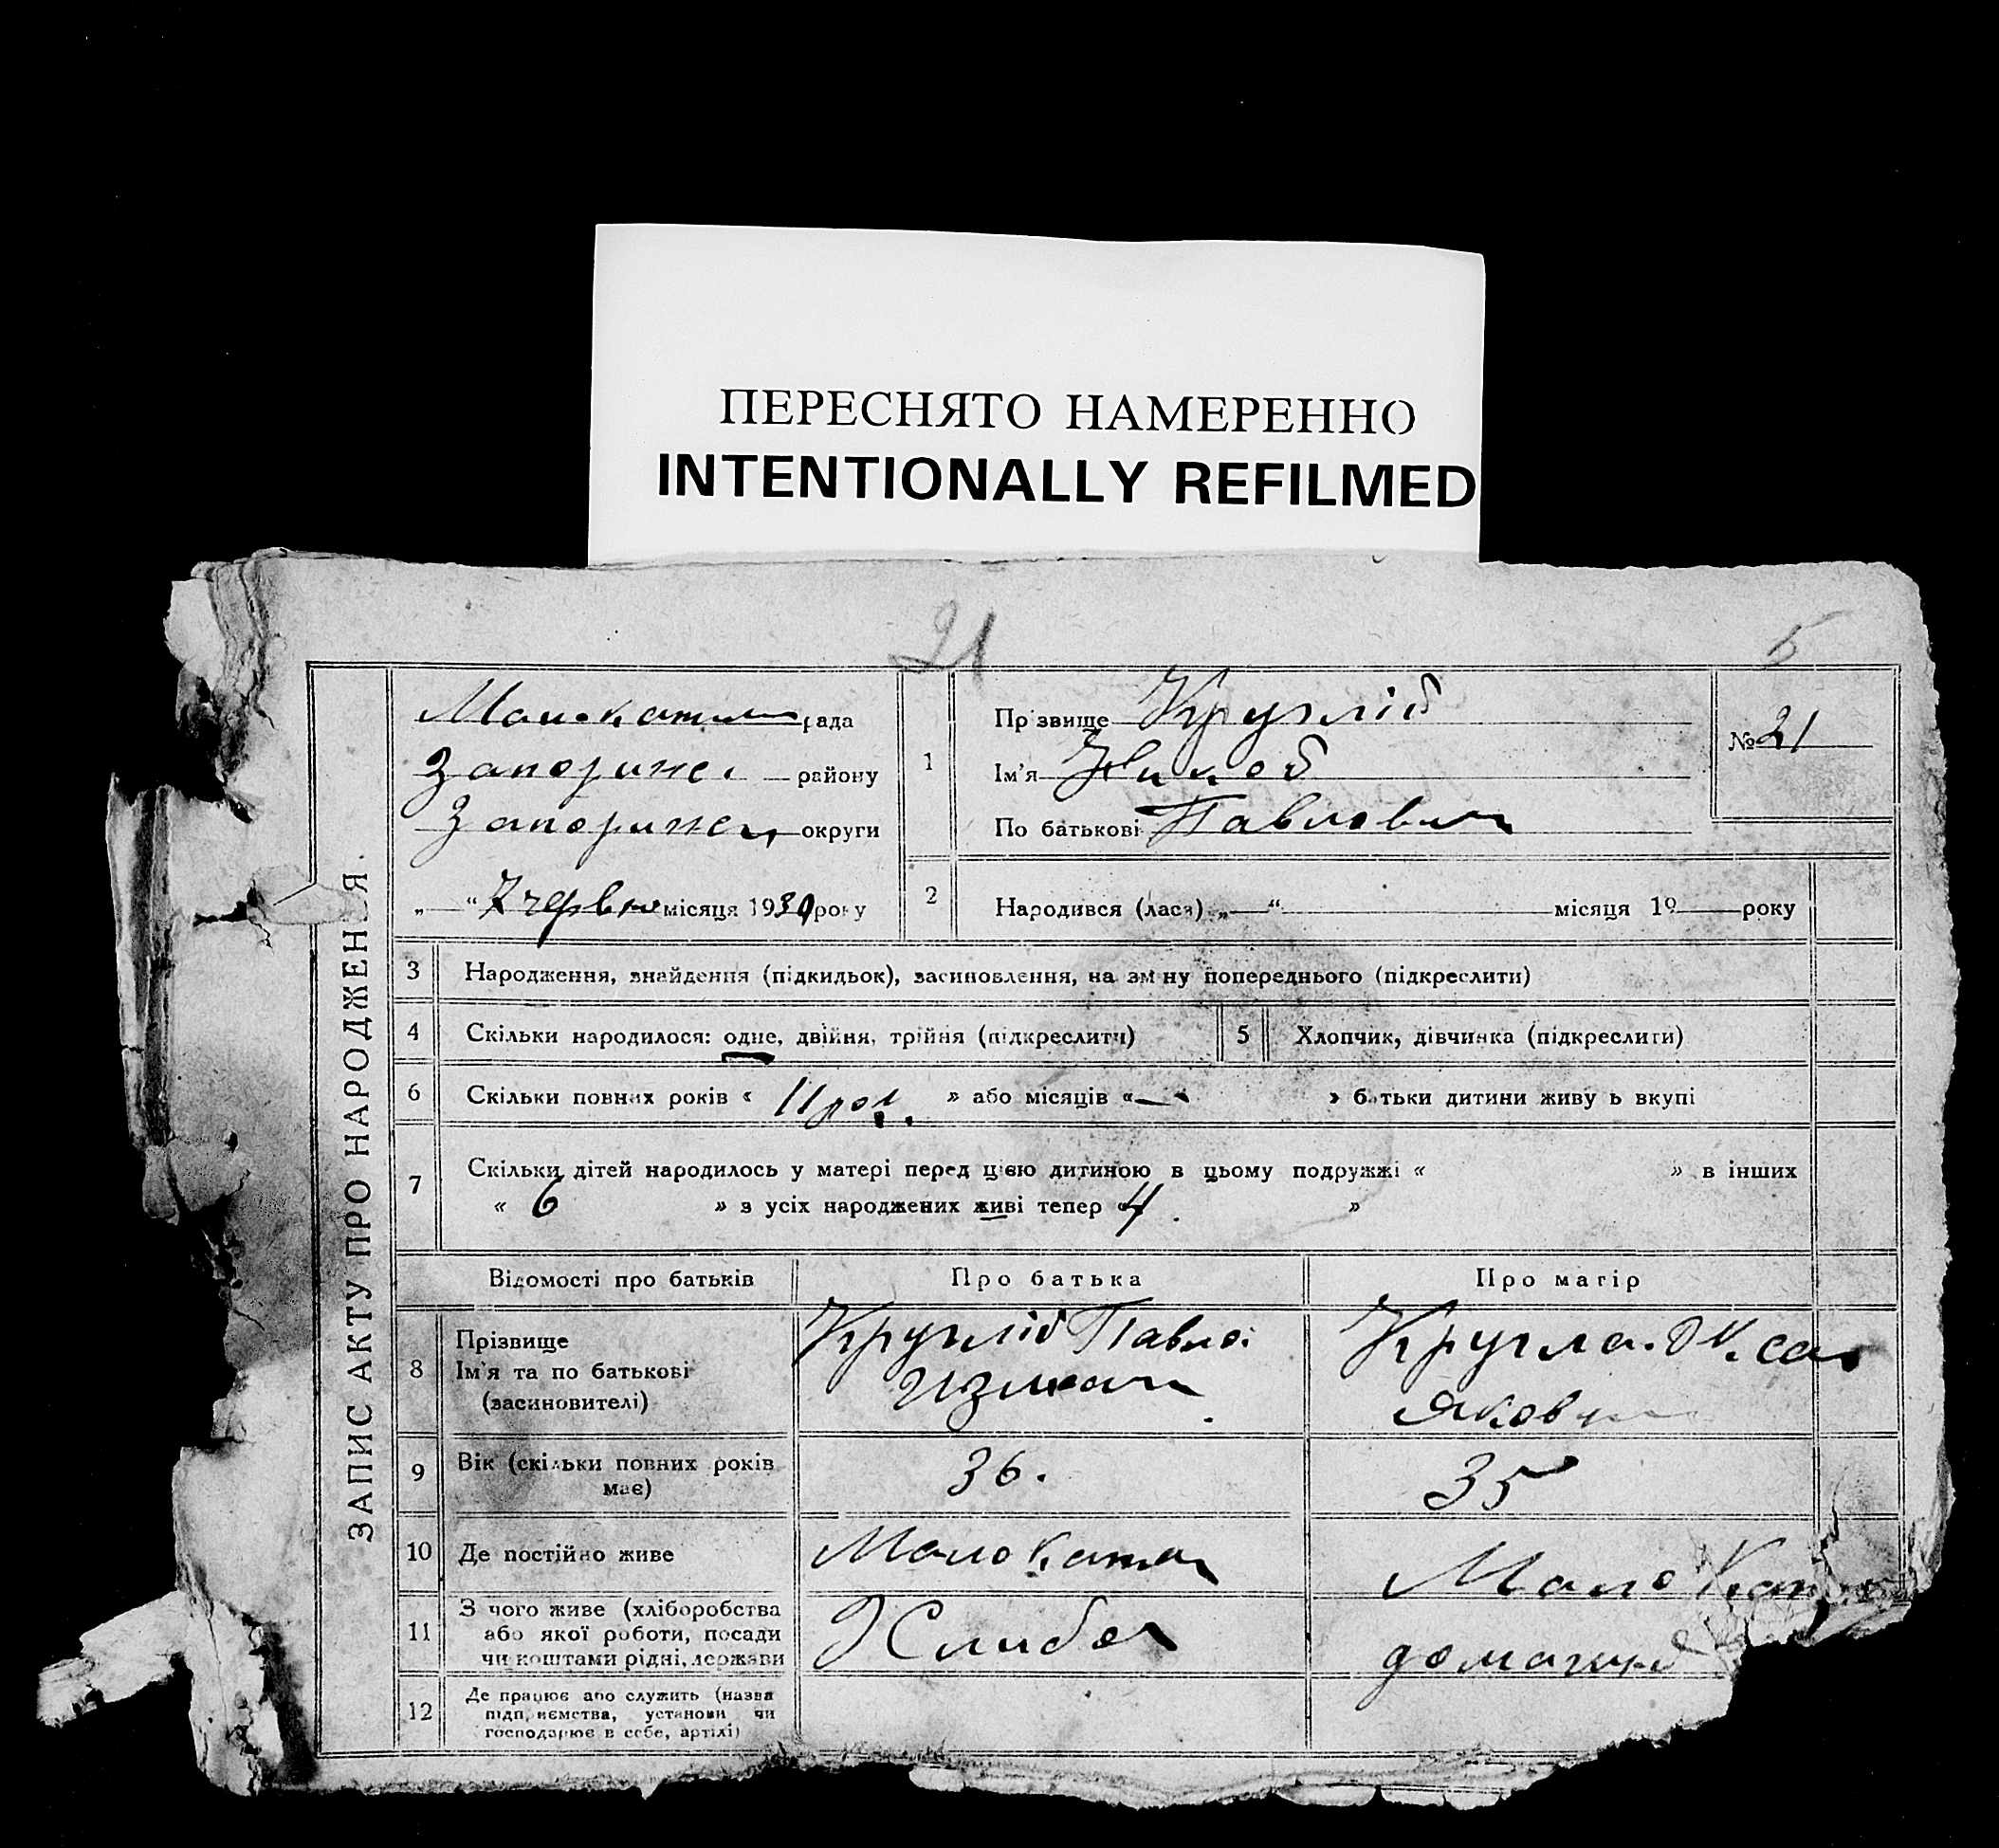 ПЕРЕСНЯТО НАМЕРЕННО
INTENTIONALLY REFILMED
21
5
ЗАПИС АКТУ ПРО НАРОДЖЕННЯ.
рада
району
округи
„—“ 7 червня місяця 1930 року
1
Прізвище Круглий
Ім'я
По батькові Павлович
№ 21
2
Народився (лася) „—“ місяця 19 року
3 Народження, знайдення (підкидьок), засиновлення, на зміну попереднього (підкреслити)
4 Скільки народилося: одне, двійня, трійня (підкреслити)
5 Хлопчик, дівчинка (підкреслити)
6 Скільки повних років « 11 рок. » або місяців «—» батьки дитини живуть вкупі
7 Скільки дітей народилось у матері перед цією дитиною в цьому подружжі « » в інших
« 6 » з усіх народжених живі тепер « 4 . »
Відомості про батьків
Про батька
Про матір
8
Прізвище
Ім'я та по батькові
(засиновителі)
Круглий Павло
Кругла
Яковл
9
Вік (скільки повних років
має)
36.
35
10 Де постійно живе
Мало Катер
Мало Кат
11
З чого живе (хліборобства
або якої роботи, посади
чи коштами рідні, держави
12
Де працює або служить (назва
підприємства, установи чи
господарює в себе, артілі)